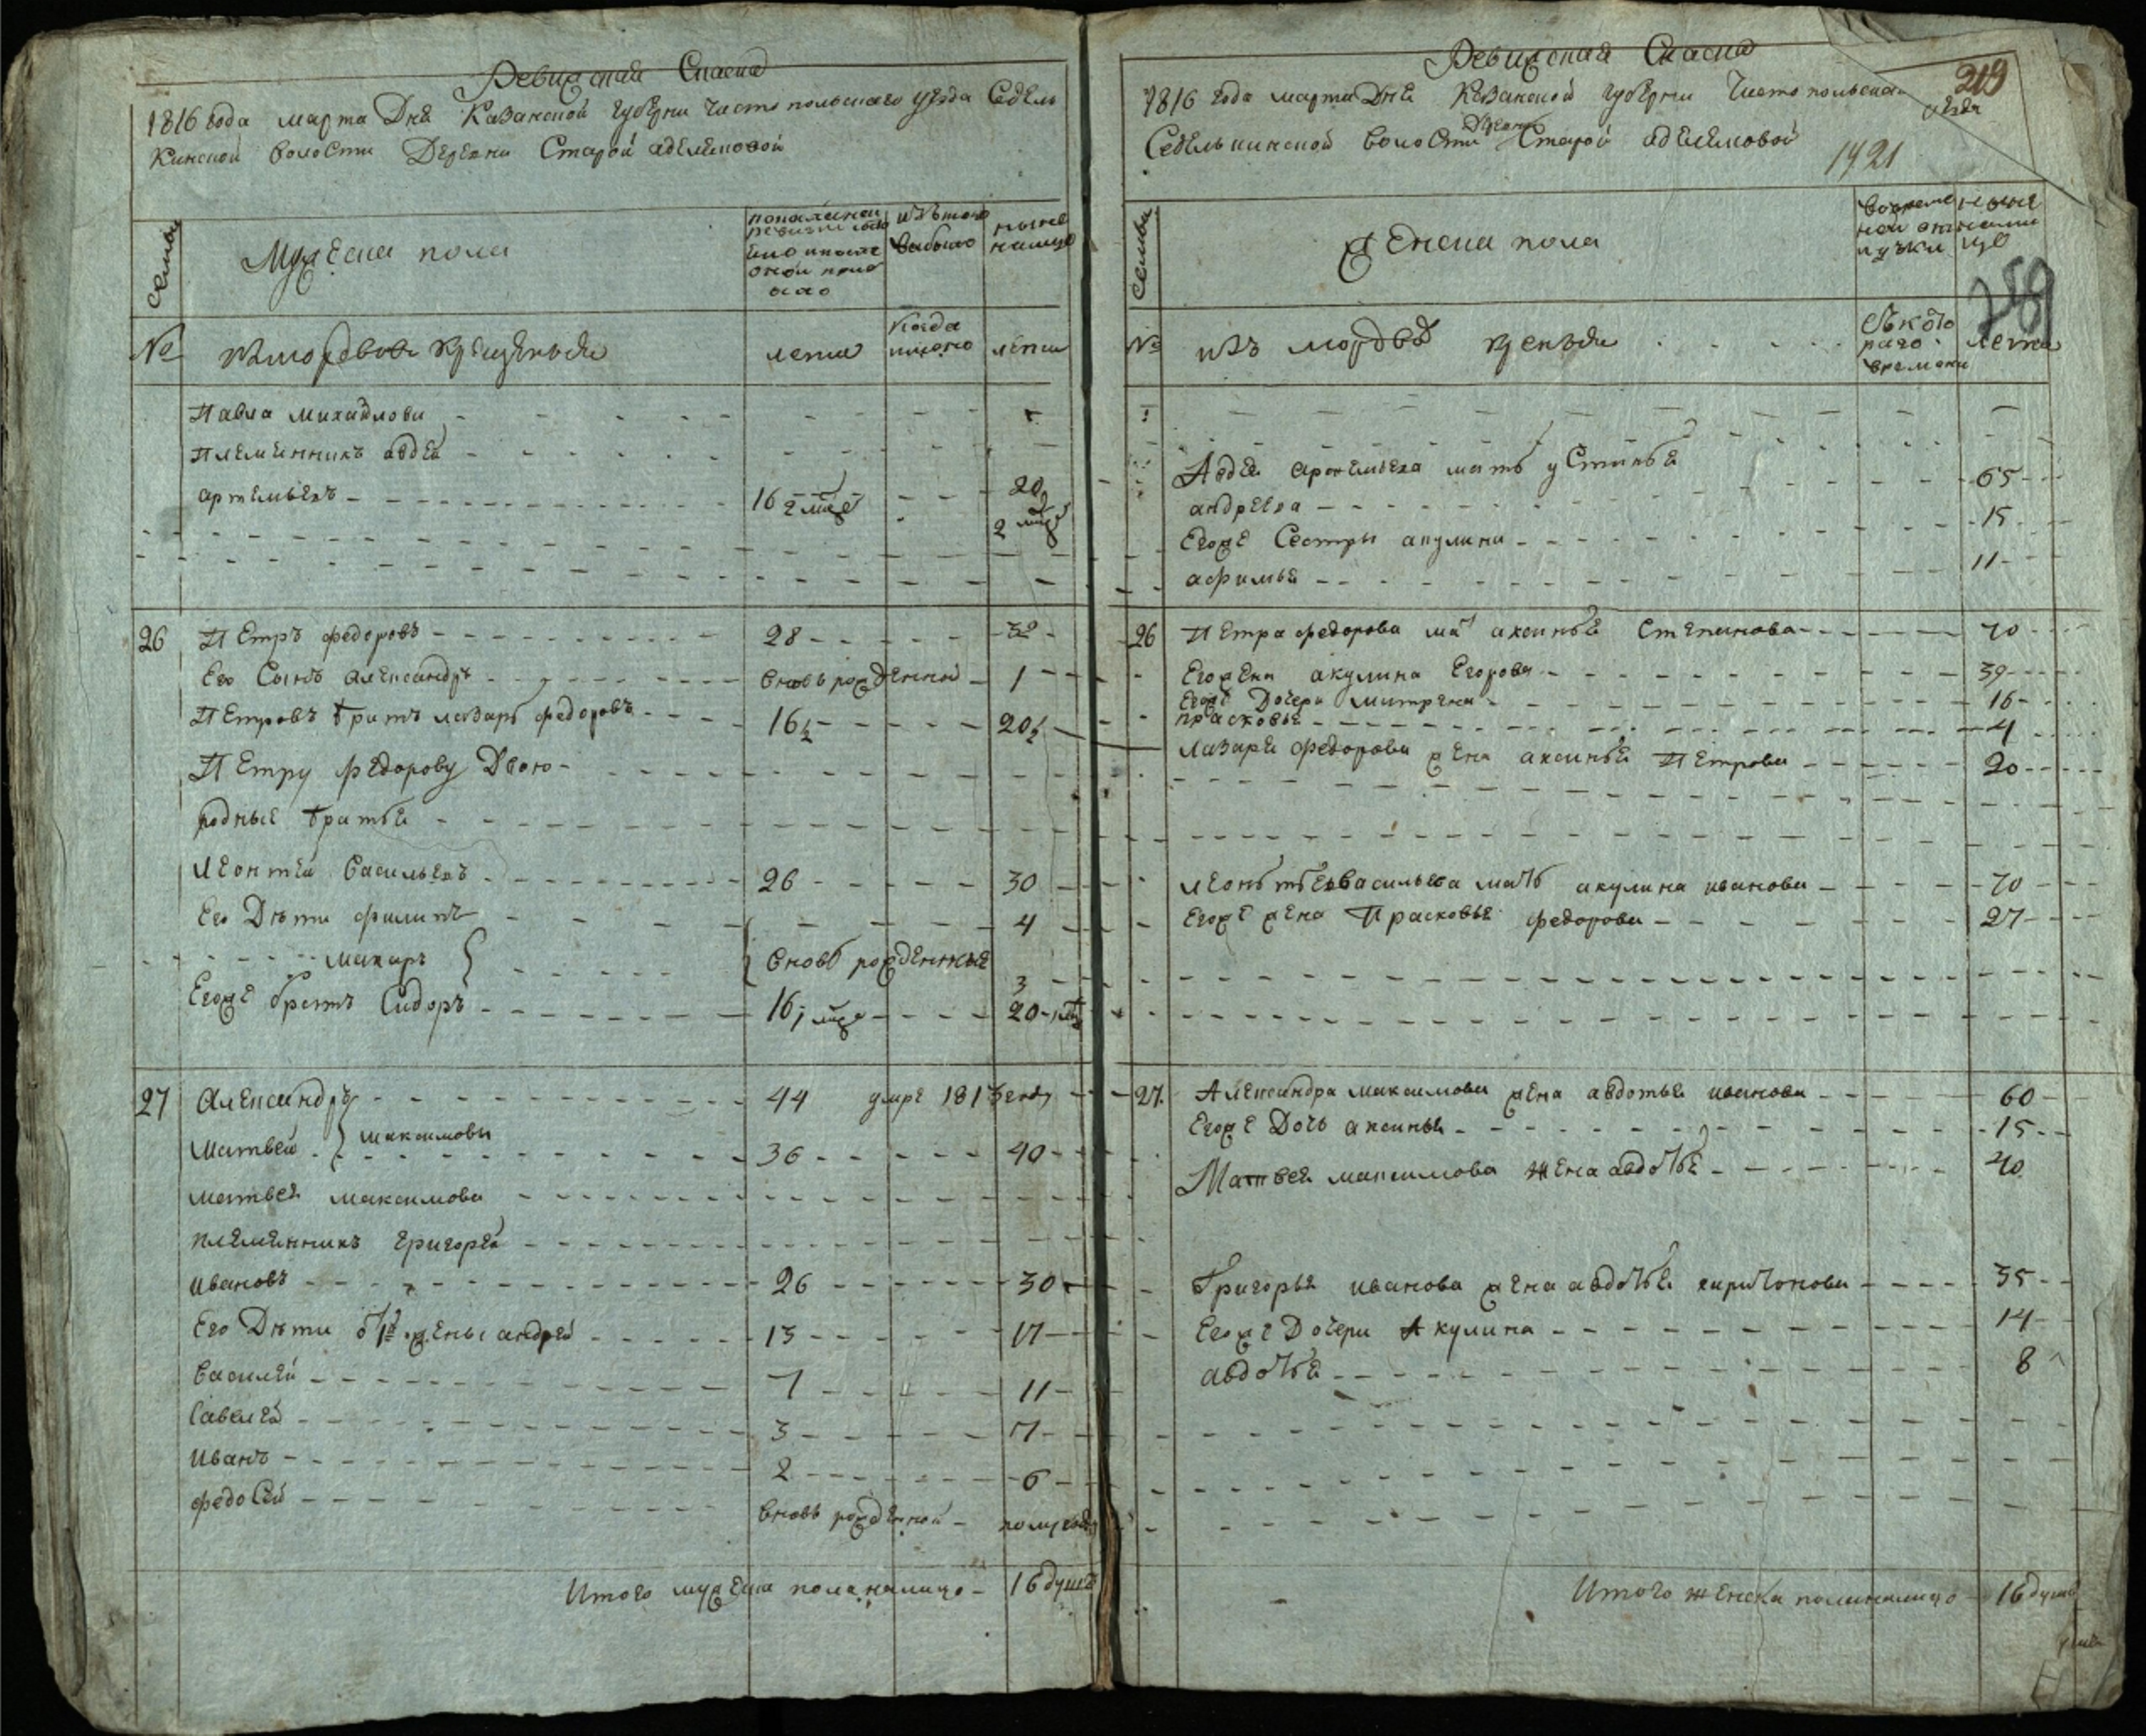 Ревижская Сказка
1816 года марта Дня Казанской губерни Чистопольскаго уезда Седель
кинской волости Деревни Старой адемекмовой
Семьи
Мужеска пола
по последней
ревизии состо
яло и после
оной при
было
изъ того
выбыло
ныне
налицо
№
изъмордвов крещеныхъ
лета
когда
имяно
лета
Павла михайлова
племянникъ авдей
артемьевъ 16 2 мце 20 2 мце
26 Петръ федоровъ 28 32
Его Сынъ александръ вновь рожденной 1
Петровъ братъ лазарь федоровъ 16½ 20½
Петру федорову Двою
родные братья
леонтей Васильевъ 26 30
Его Дети филипъ 4
макаръ вновь рожденные 3
Егоже братъ Сидоръ 16 1 мце 20
27 Александръ 44 умре 1813 году
Матвей максимовы 36 40
матвея максимова
племянникъ григорей
ивановъ 26 30
Его Дети от 1й жены андрей 13 17
Василей 7 11
Савелей 3 7
Иванъ 2 6
федосей вновь рожденной полугода
Итого мужеска пола налицо 16 душъ
Ревижская Сказка
219
1816 года марта Дня Казанской губерни Чистопольскаго
уезда
Седелькинской волости Деревни Старой адемекмовой
1421
Семьи
Женска пола
вовремен
ной от
лучки
ныне
нали
цо
259
№
изъ мордвъ
Съ кото
раго
времени
лета
Авдея артемьева мать устинья
андреева 65
Егоже Сестры акулина 15
афимья 11
26 Петра федорова мать аксинья Степанова 70
Егожена акулина Егорова 39
Егоже Дочери митрена 16
прасковья 4
Лазаря федорова жена аксинья Петрова 20
леонтьева Васильева мать акулина иванова 70
Егоже жена Прасковья федорова 27
27. Александра максимова жена авдотья иванова 60
Егоже Дочь аксинья 15
Матвея максимова жена авдотья 40
Григорья иванова жена авдотья харитонова 35
Егоже Дочери Акулина 14
авдотья 8
Итого женска пола налицо 16 душъ